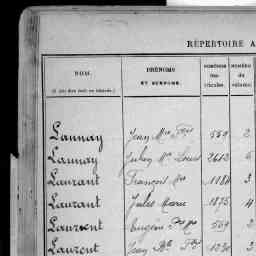 RÉPERTOIRE A
NOM. PRÉNOMS ET SURNOMS. NUMÉROS des matricules. NUMÉRO du volume
Launay Jean Mie 559 2
Launay Julien Mie Louis 2612 5
Laurant François Mie 1184 3
Laurant Jules Marie 1875 4
Laurent Eugène 559 2
Laurent Jean Bte 1230 3